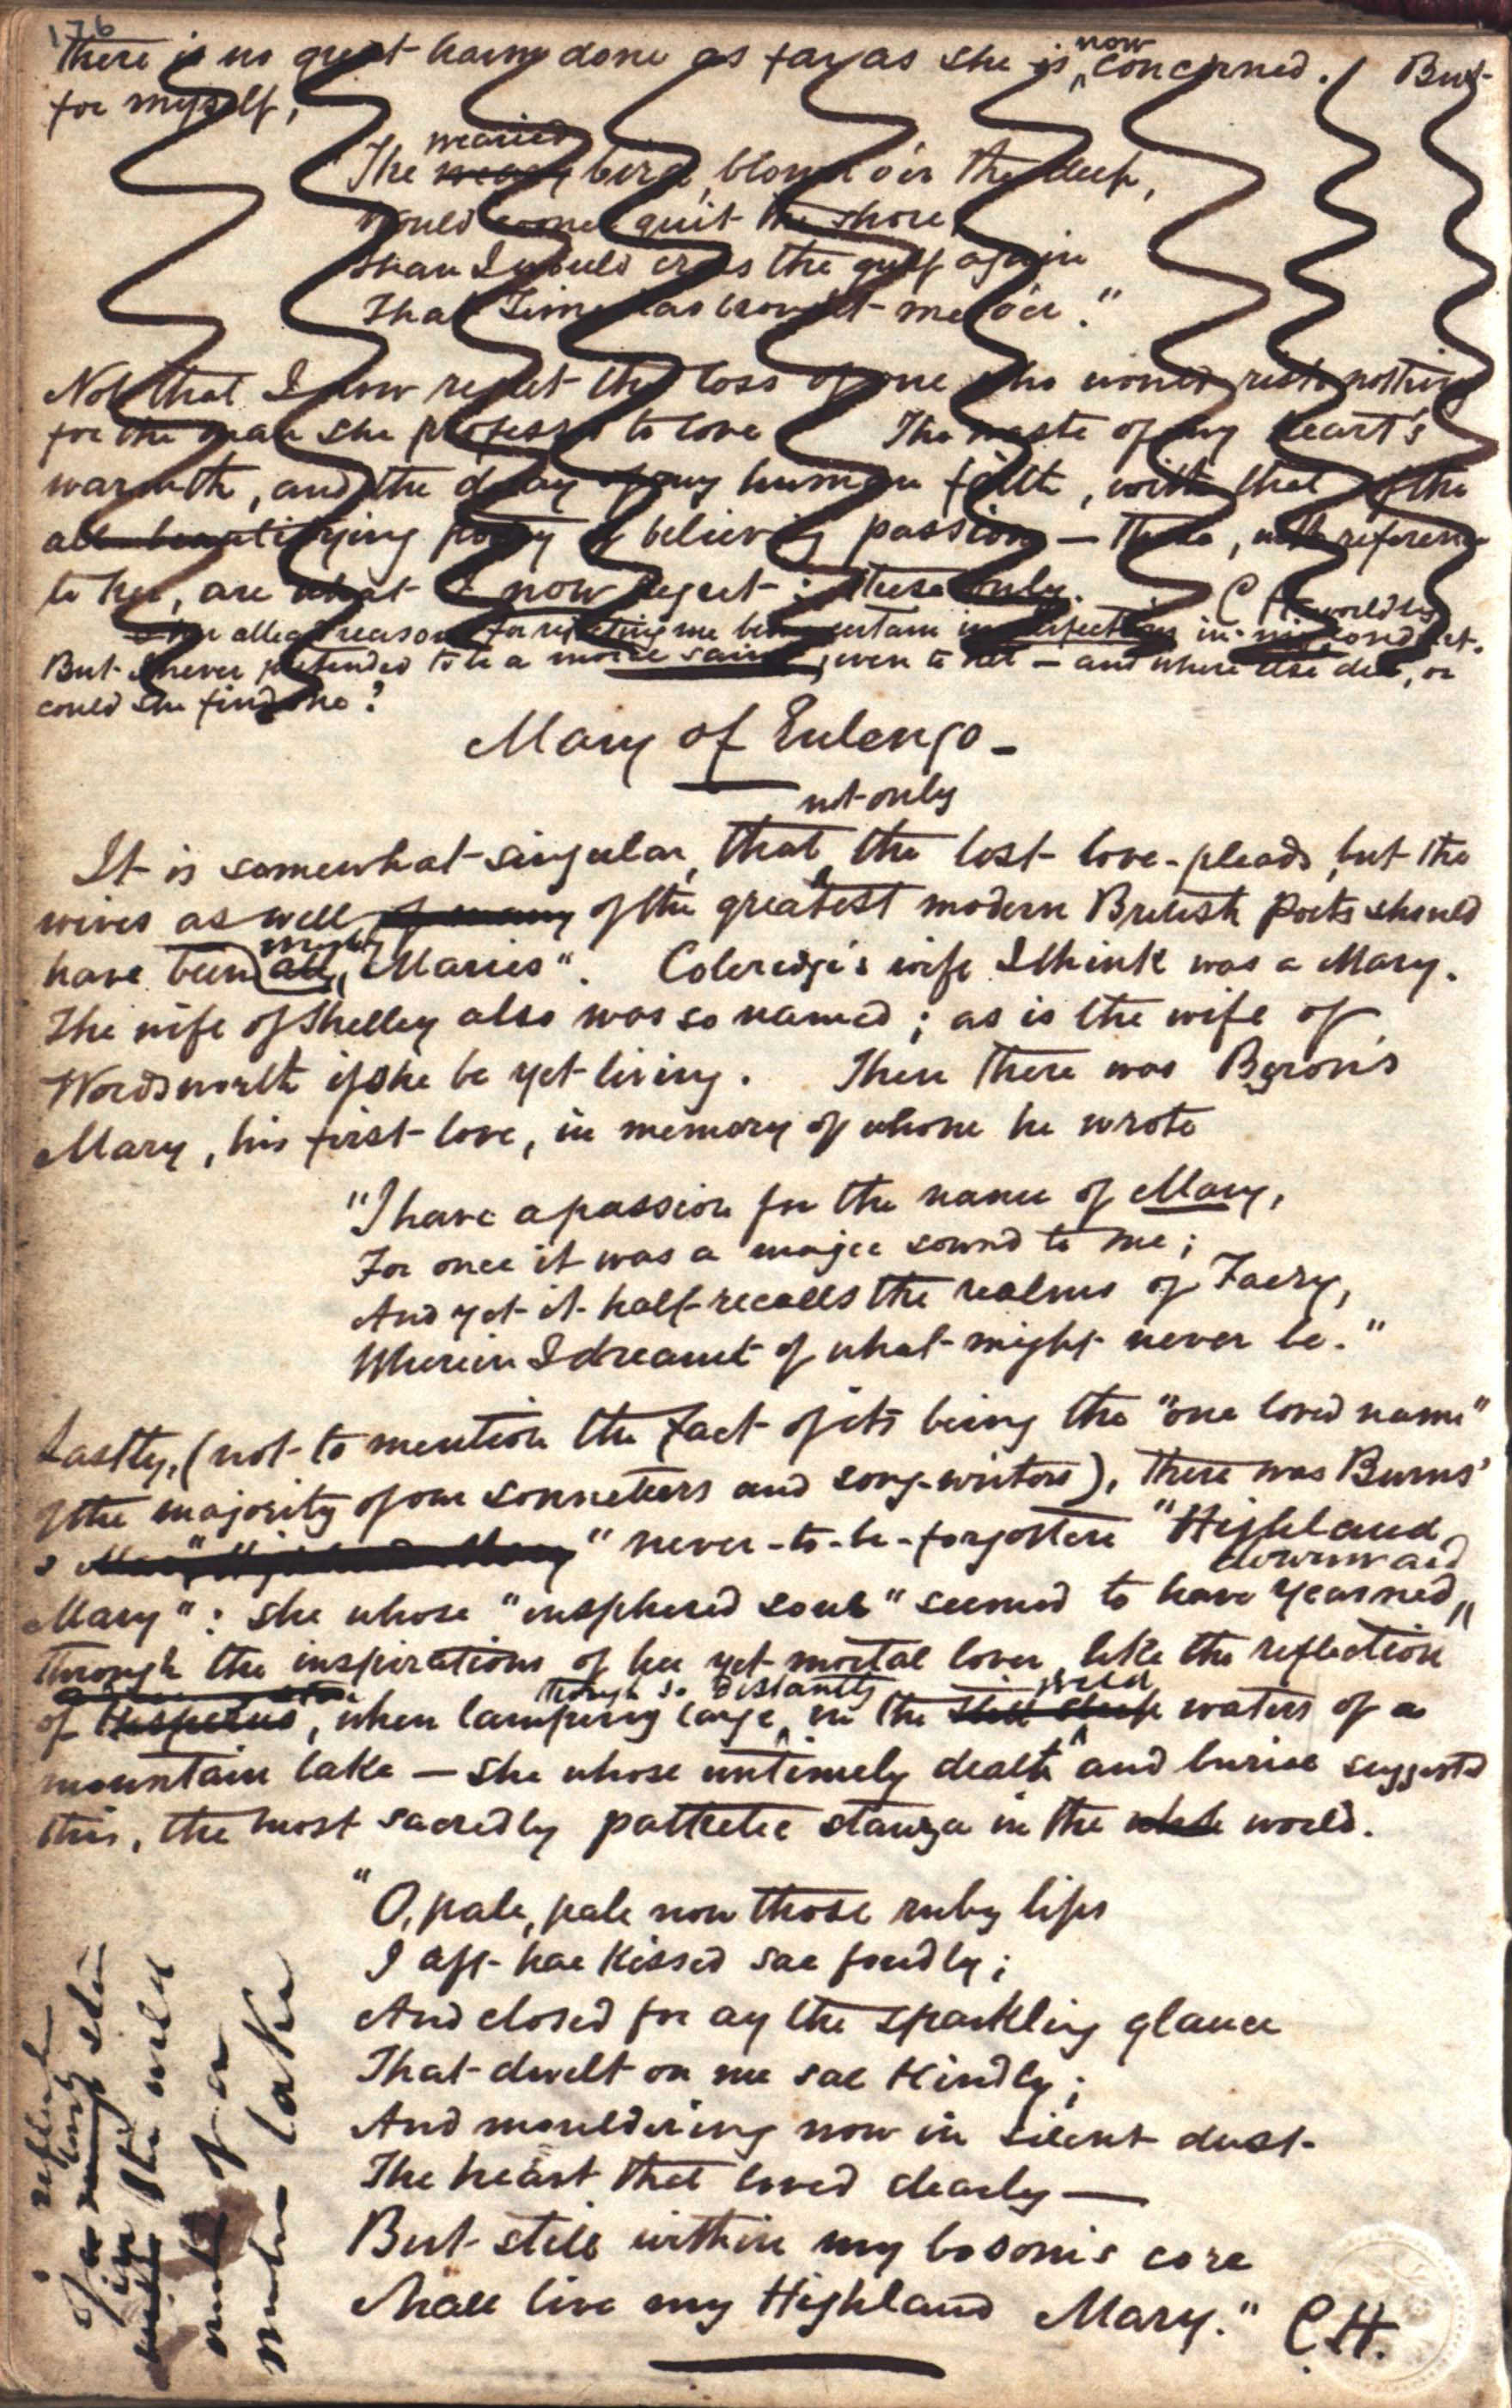 176
There is no great harm done as far as she is now concerned. But
for myself,
"The wearied weary bird, blown o'er the deep,
Would sooner quit the shore,
Than I would cross the gulf again
That Time has brought me o'er."
Not that I now regret the loss of one who would risk nothing
for the man she professed to love The waste of my heart's
warmth, and the decay of my human faith, with that of the
all-beautifying poetry of believing passion — these, with reference
to her, are what I now regret: these only. C H
worldly
alleged reason for rejecting me being certain imperfections in my conduct.
But I never pretended to be a moral saint, even to her — and where else did, or
could she find one?
Mary of Eulengo —
not only
It is somewhat singular, that the lost love-pleads, but the
wives as well of many of the greatest modern British Poets should
have been all "Maries". Coleridge's wife I think was a Mary.
The wife of Shelley also was so named; as is the wife of
Wordsworth if she be yet living. Then there was Byron's
Mary, his first love, in memory of whom he wrote
"I have a passion for the name of Mary,
For once it was a magic sound to me;
And yet it half-recalls the realms of Faery,
Wherein I dreamt of what might never be."
Lastly, (not to mention the fact of its being the "one loved name"
of the majority of our sonneteers and song-writers), there was Burns'
never-to-be-forgotten "Highland
downward
Mary": she whose "insphered soul" seemed to have yearned,
through the inspirations of her yet mortal lover, like the reflection
though so distantly wild
of Hesperus, when lamping large, in the still deep waters of a
mountain lake — she whose untimely death and burial suggested
this, the most sacredly pathetic stanza in the whole world.
"O, pale, pale now those ruby lips
I aft hae kissed sae fondly;
And closed for ay the sparkling glance
That dwelt on me sae kindly;
And mouldering now in silent dust
The heart that loved dearly —
But still within my bosom's core
Shall live my Highland Mary." C.H.
in the wild
of a
lake